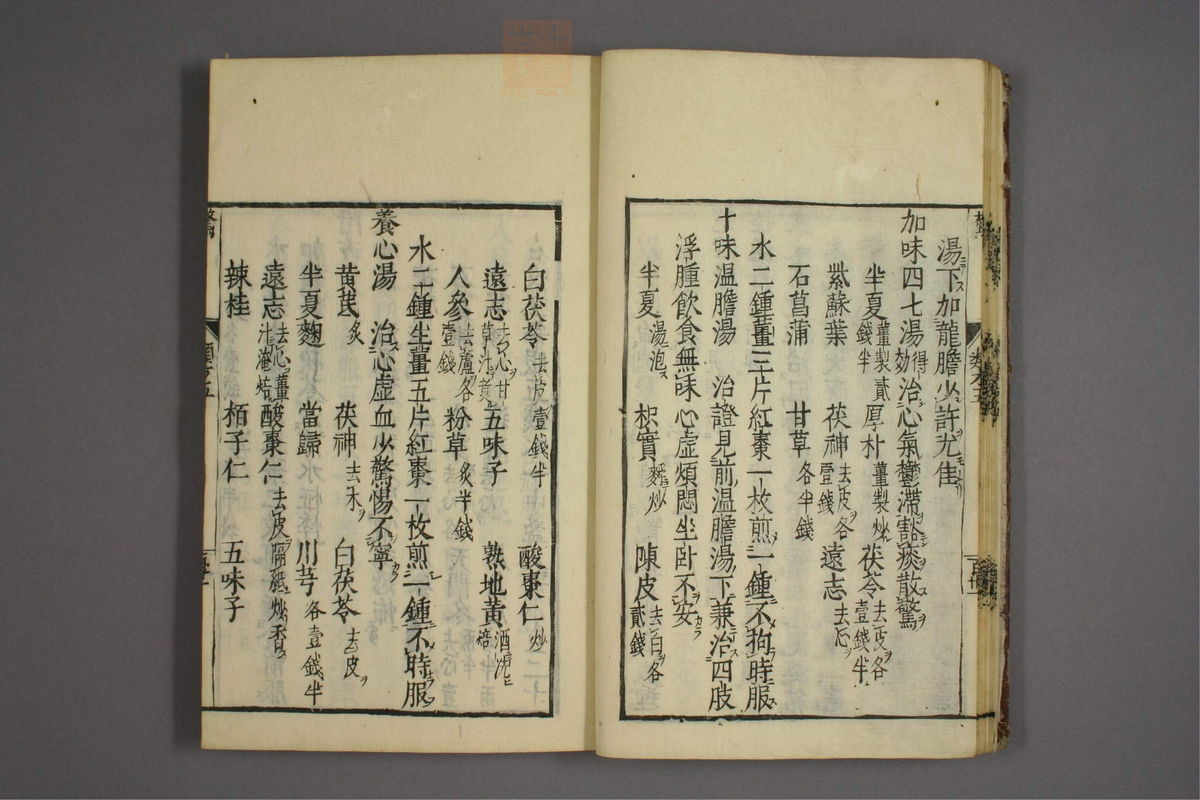 湯下加龍膽少許尤佳
加味四七湯得妙治心氣鬱滯豁痰散驚
半夏薑製貳錢半 厚朴薑製炒 茯苓去皮各壹錢半
紫蘇葉 茯神去皮各壹錢 遠志去心
石菖蒲 甘草各半錢
水二鍾薑三片紅棗一枚煎一鍾不拘時服
十味温膽湯 治證見前温膽湯下兼治四肢
浮腫飲食無味心虚煩悶坐卧不安
半夏湯泡 枳實麩炒 陳皮去白各貳錢
白茯苓去皮壹錢半 酸棗仁炒
遠志去心甘草汁煑 五味子 熟地黄酒洗焙
人參去蘆各壹錢 粉草炙半錢
水二鍾生薑五片紅棗一枚煎一鍾不時服
養心湯 治心虚血少驚惕不寧
黄芪炙 茯神去木 白茯苓去皮
半夏麯 當歸 川芎各壹錢半
遠志去心薑汁淹焙 酸棗仁去皮隔紙炒香
辣桂 栢子仁 五味子